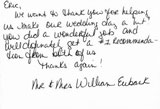 Eric,
We want to thank you for helping
us make our wedding day a hit
you did a wonderful job and
will definitely get a #1 Recommenda-
tion from both of us
Thanks again!
Mr & Mrs William Eubank